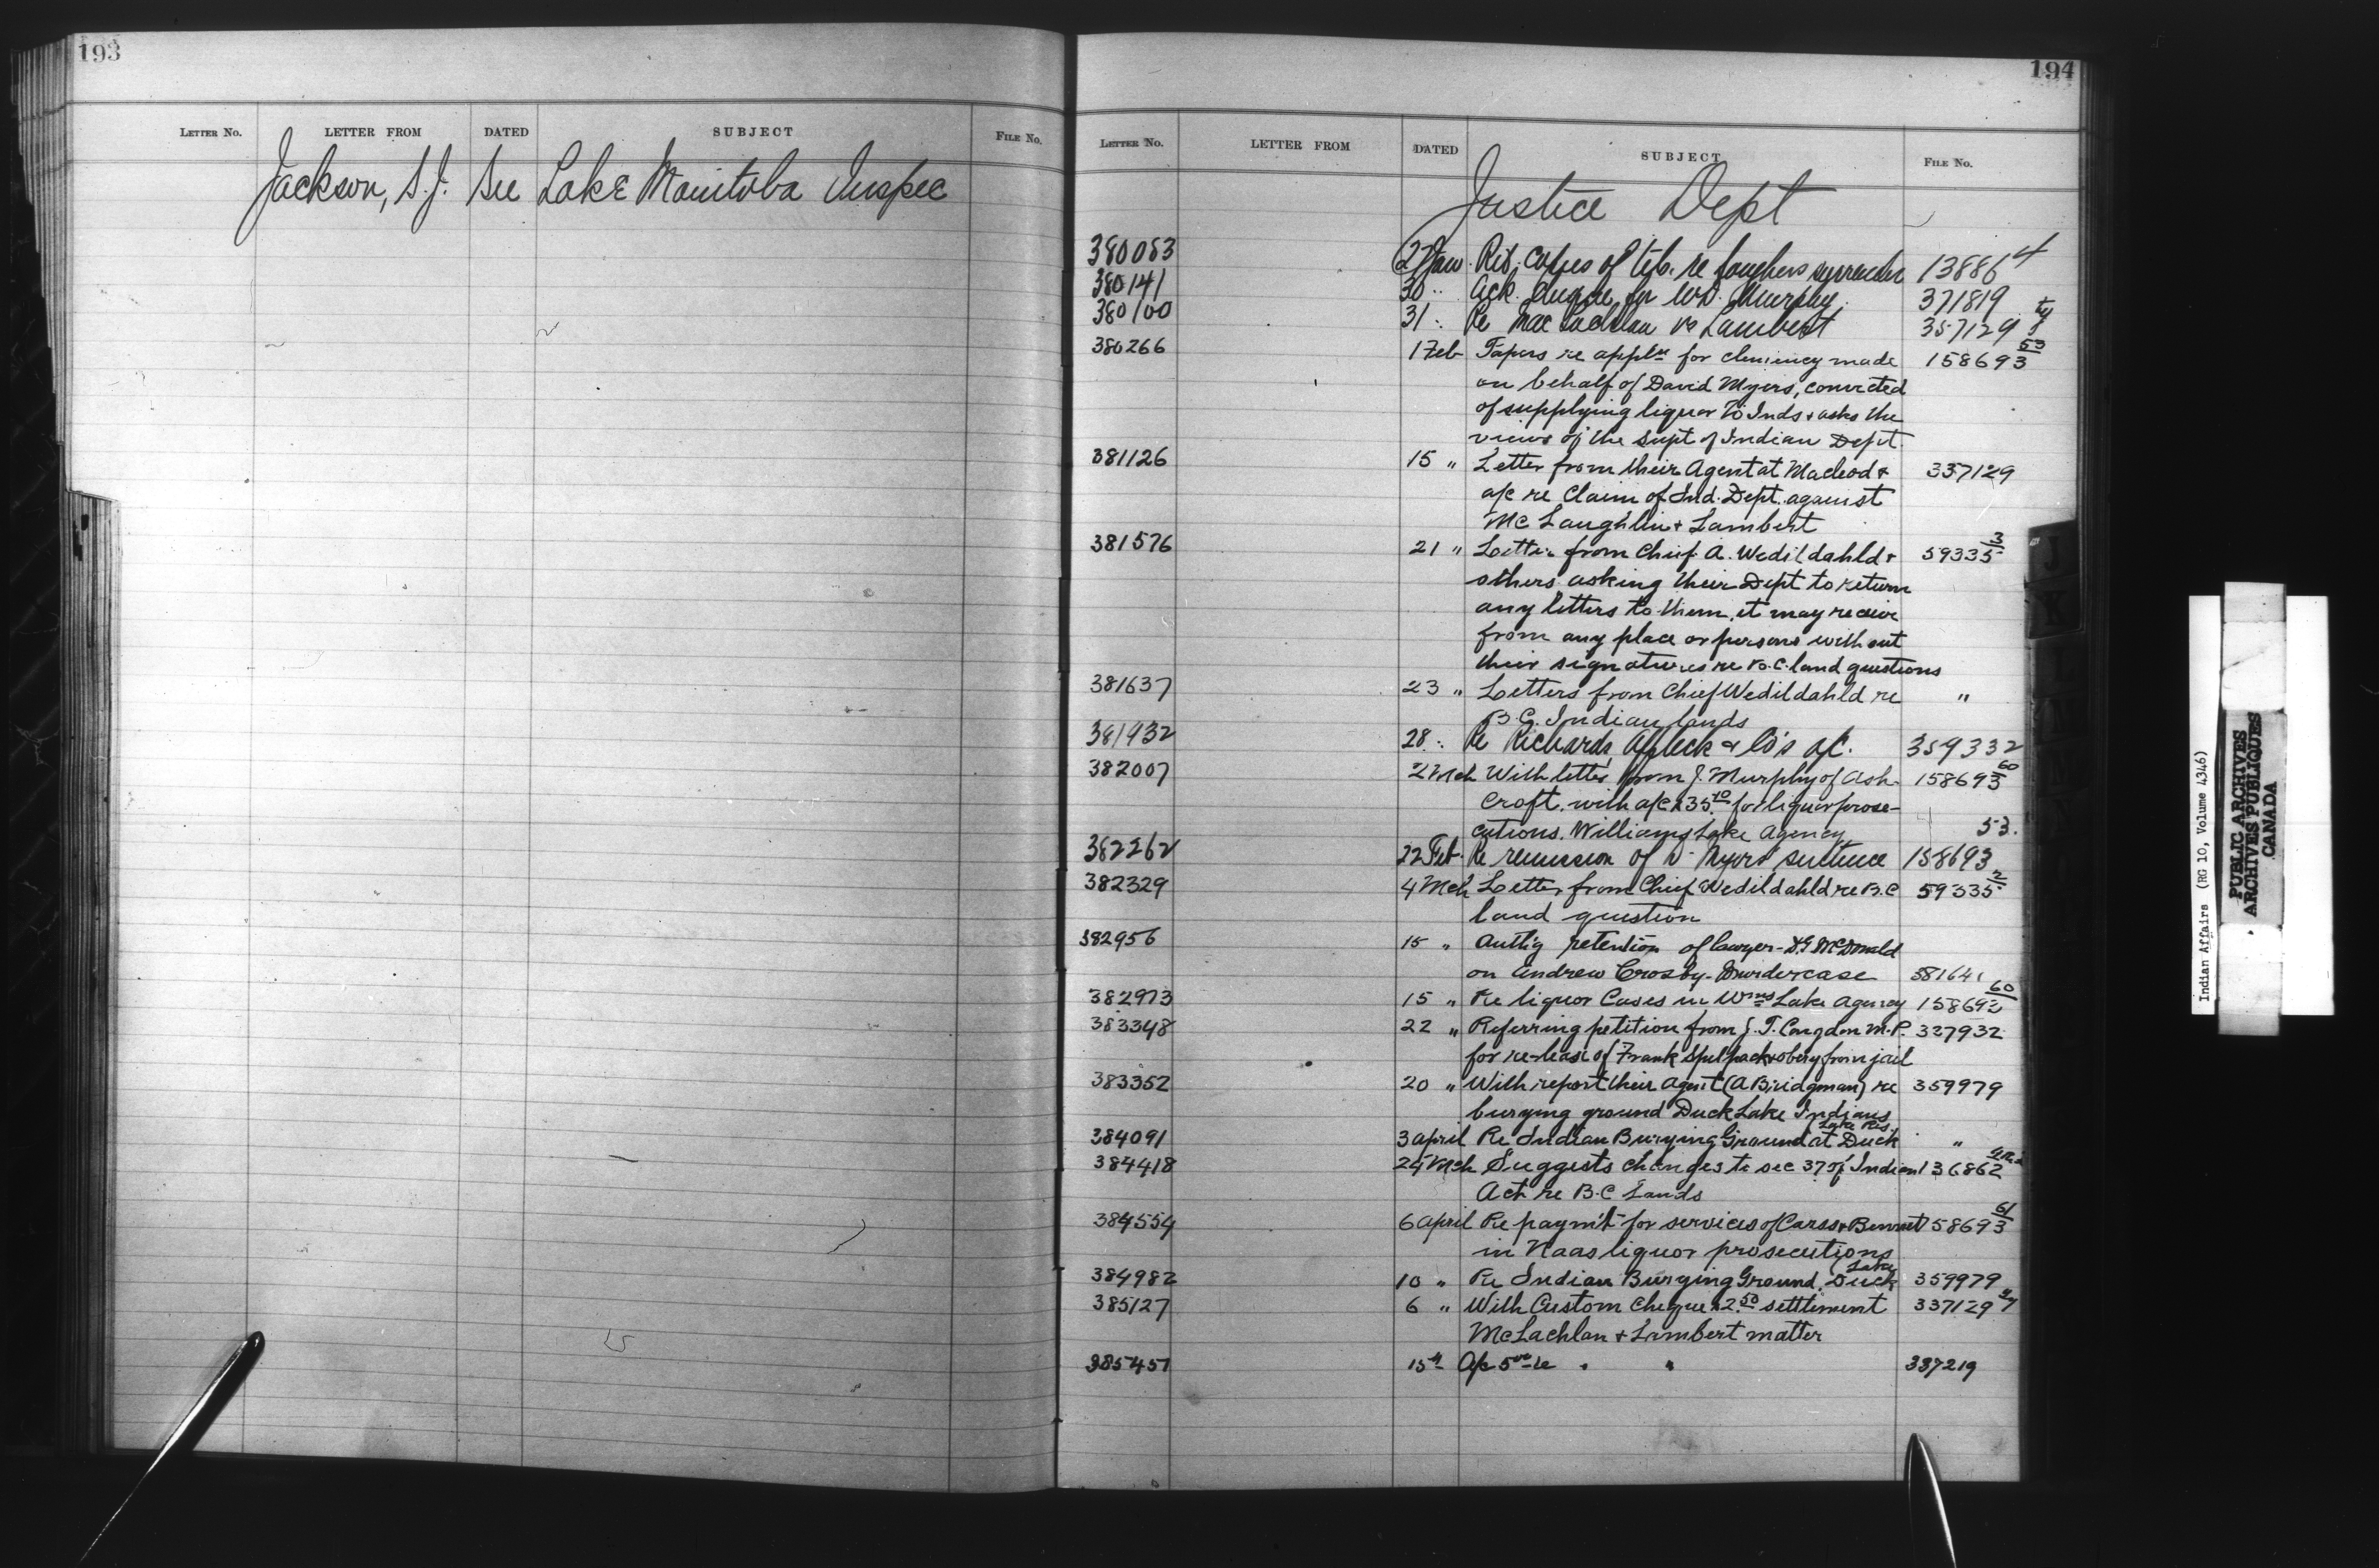 193
LETTER No. LETTER FROM DATED SUBJECT FILE No.
Jackson, S.J. See Lake Manitoba Inspec
194
LETTER No. LETTER FROM DATED SUBJECT FILE No.
Justice Dept
380083 27 Jan. Ret. copies of re surrender 138864
380141 30 " Ack. cheque for W.D. Murphy. 371819
380100 31 " Re MacLachlan vs Lambert 357129
380266 1 Feb Papers re appln for clemency made 158693 53
on behalf of David Myers, convicted
of supplying liquor to Inds & asks the
views of the Supt of Indian Dept.
381126 15 " Letter from their Agent at Macleod & 337129
a/c re Claim of Ind. Dept. against
McLaughlin & Lambert
381576 21 " Letter from Chief A. Wedildahld & 59335 3
others asking their Dept to return
any letters to them, it may receive
from any place or persons without
their signatures re B.C. land questions
381637 23 " Letters from Chief Wedildahld re "
B.C. Indian lands
381932 28 " Re Richards, Affleck & Co's a/c. 359332
382007 2 Mch With letter from J. Murphy of Ash- 158693 60
croft. with a/c $35.10 for liquor prose-
cutions. Williams Lake Agency
382262 22 Feb. Re remission of D. Myers' sentence 158693 53.
382329 4 Mch Letter from Chief Wedildahld re B.C 59335 2
land question
382956 15 " Auth'g retention of lawyer - D.G. McDonald
on Andrew Crosby - Murder case 381641
382973 15 " Re liquor Cases in Wms Lake Agency 158692 60
383348 22 " Referring petition from J. T. Congdon M.P. 327932
for release of Frank from jail
383352 20 " With report their Agent (A Bridgman) re 359979
burying ground Duck Lake Indians
384091 3 April Re Indian Burying Ground at Duck Lake Res. "
384418 24 Mch Suggests changes to sec 37 of Indian 136862
Act re B.C Lands
384554 6 April Re paym't for services of Carss & Bennet 158693 61
in Naas liquor prosecutions
384982 10 " Re Indian Burying Ground, Duck Lake 359979
385127 6 " With Custom Cheque $2.50 settlement 337129
McLachlan & Lambert matter
385451 15th A/c 5.00 re " " 337219
J
K
Indian Affairs (RG 10, Volume 4346)
PUBLIC ARCHIVES
ARCHIVES PUBLIQUES
CANADA